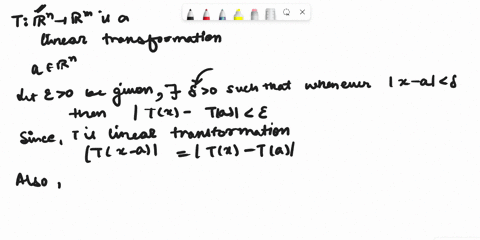 T: ℝⁿ → ℝᵐ is a
linear transformation
a ∈ ℝⁿ
Let ε>0 be given, ∃ δ>0 such that whenever |x-a|<δ
then |T(x) - T(a)| < ε
Since, T is linear transformation
|T(x-a)| = |T(x) - T(a)|
Also,